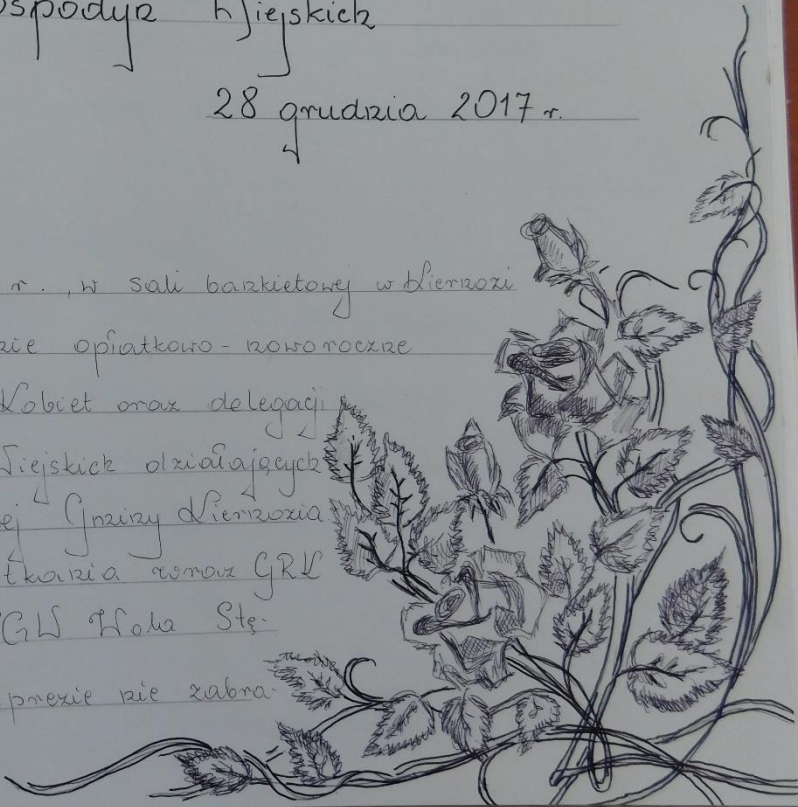 ospodyń Wiejskich
28 grudnia 2017 r.
r., w sali bankietowej w Wierzni
zie opłatkowo - noworoczne
Kobiet oraz delegacji
Wiejskich działających
ej Gminy
tkania wraz GRK
KGW Wola Stę-
prezie nie zabra-